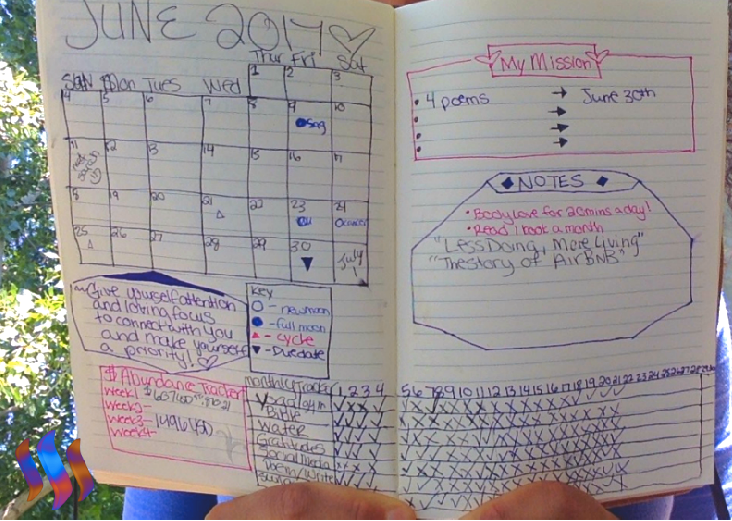 JUNE 2017
Thur Fri Sat
Sun Mon Tues Wed
1 2 3
4 5 6 7 8 9 10
Sag
11 12 13 14 15 16 17
19 20 21 22 23 24
25 26 27 28 29 30 July
1
Give yourself attention
and loving focus
to connect with you
and make yourself
a priority!
Key
- new moon
- full moon
- cycle
- Due date
$ Abundance Tracker
Week1
Week2-
Week3-
Week4-
My Mission
4 poems → June 30th
→
→
→
NOTES
• Body love for 20 mins a day!
• Read 1 book a month
"Less Doing, More Living"
"The Story of AirBNB"
Monthly Tracker 1 2 3 4 5 6 7 8 9 10 11 12 13 14 15 16 17 18 19 20 21 22 23 24 25 26 27 28 29 30
Bible
Water
Gratitudes
Social Media